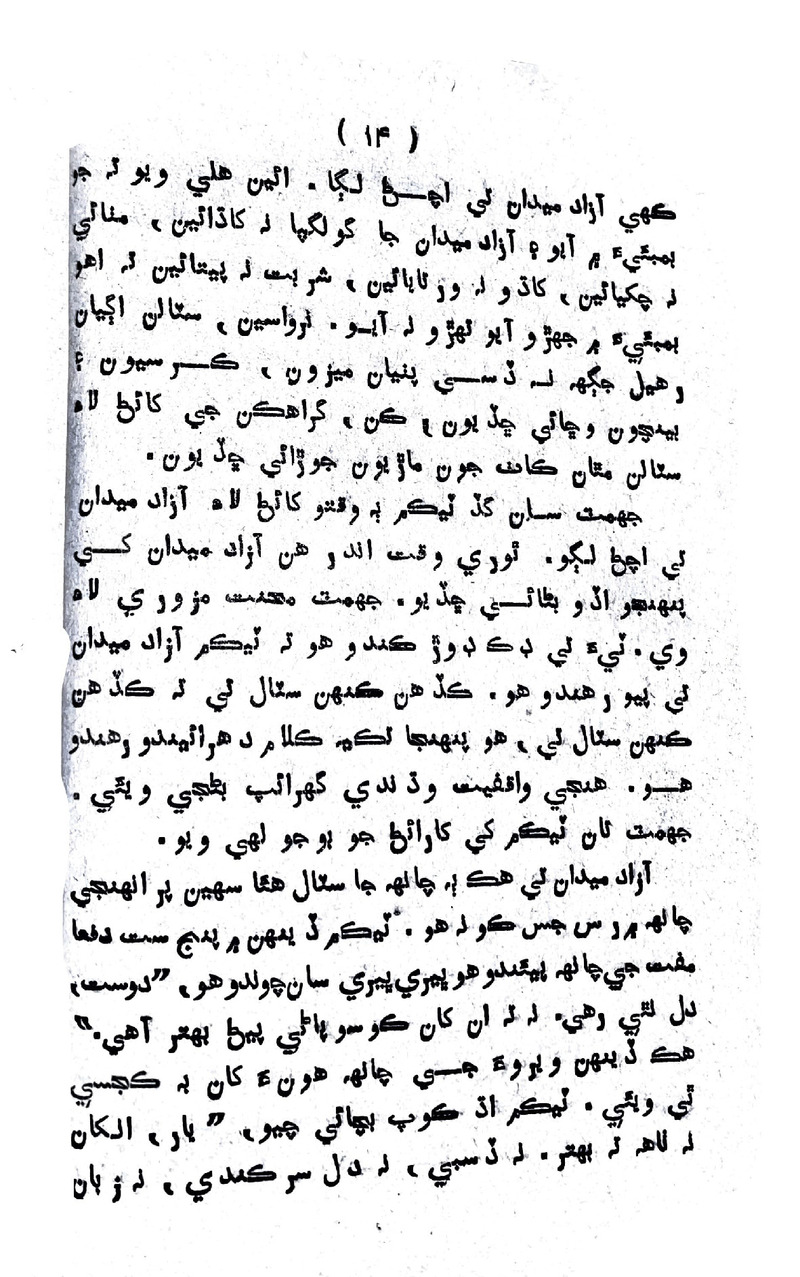 ( ۱۴ )
ڪهي آزاد ميدان تي اچــڻ لڳا. ائين هلي ويو ته جو
بمبئيءَ ۾ آيو ۽ آزاد ميدان جا گولگپا نه کاڌائين، مٺائي
نه چکيائين، کاڌو نه ورتابائين، شربت نه پيتائين ته اهو
بمبئيءَ ۾ جهڙو آيو تهڙو نه آيـو. نرواسين، سٽالن اڳيان
رهيل جڳهه نـه ڏســي پنيان ميزون، ڪــرسيون ۽
بينچون وڇائي ڇڏيون، ڪن، گراهڪن جي کائڻ لاءِ
سٽالن مٿان ڪاٺ جون ماڙيون جوڙائي ڇڏيون.
جهمٽ سـان گڏ ٽيڪم ٻه وقتو کائڻ لاءِ آزاد ميدان
تي اچڻ لڳو. ٿوري وقت اندر هن آزاد ميدان کــي
پنهنجو اڏو بڻائــي ڇڏيو. جهمٽ محنت مزوري لاءِ
وي. ٽيءَ تي ڊڪ ڊوڙ ڪندو هو ته ٽيڪم آزاد ميدان
تي پيو رهندو هو. ڪڏهن ڪنهن سٽال تي ته ڪڏهن
ڪنهن سٽال تي، هو پنهنجا لکيه ڪلام دهرائيندو رهندو
هــو. هنجي واقفيت وڌندي گهرائپ بڻجي ويئي.
جهمٽ تان ٽيڪم کي کارائڻ جو ٻوجو لهي ويو.
آزاد ميدان تي هڪ ٻه چانهه جا سٽال هئا سهين پر انهنجي
چانهه ۾ رس جس ڪو نه هو. ٽيڪم ڏينهن ۾ پنج ست دفعا
مفت جي چانهه پيئندو هو ڀيري ڀيري سان چوندو هو، ”دوست،
دل لٿي رهي. نه ته ان کان ڪوسو پاڻي پيئڻ بهتر آهي.“
هڪ ڏينهن ويروءَ جــي چانهه هونءَ کان به ڪجسي
ٿي ويئي. ٽيڪم اڌ ڪوپ بچائي چيو، ” يار، الڪان
نه لاهه ته بهتر. نه ڏسبي، نه دل سرڪندي، نه زبان